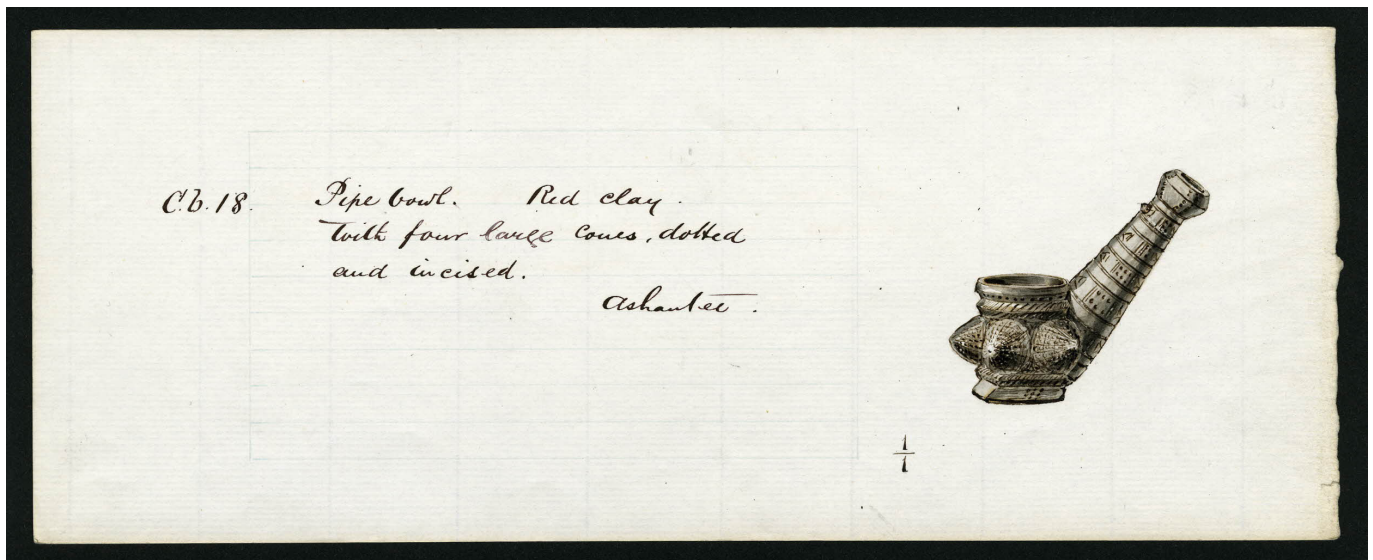 C.b.18. Pipe bowl. Red clay.
With four large cones, dotted
and incised.
Ashantee.
1/1